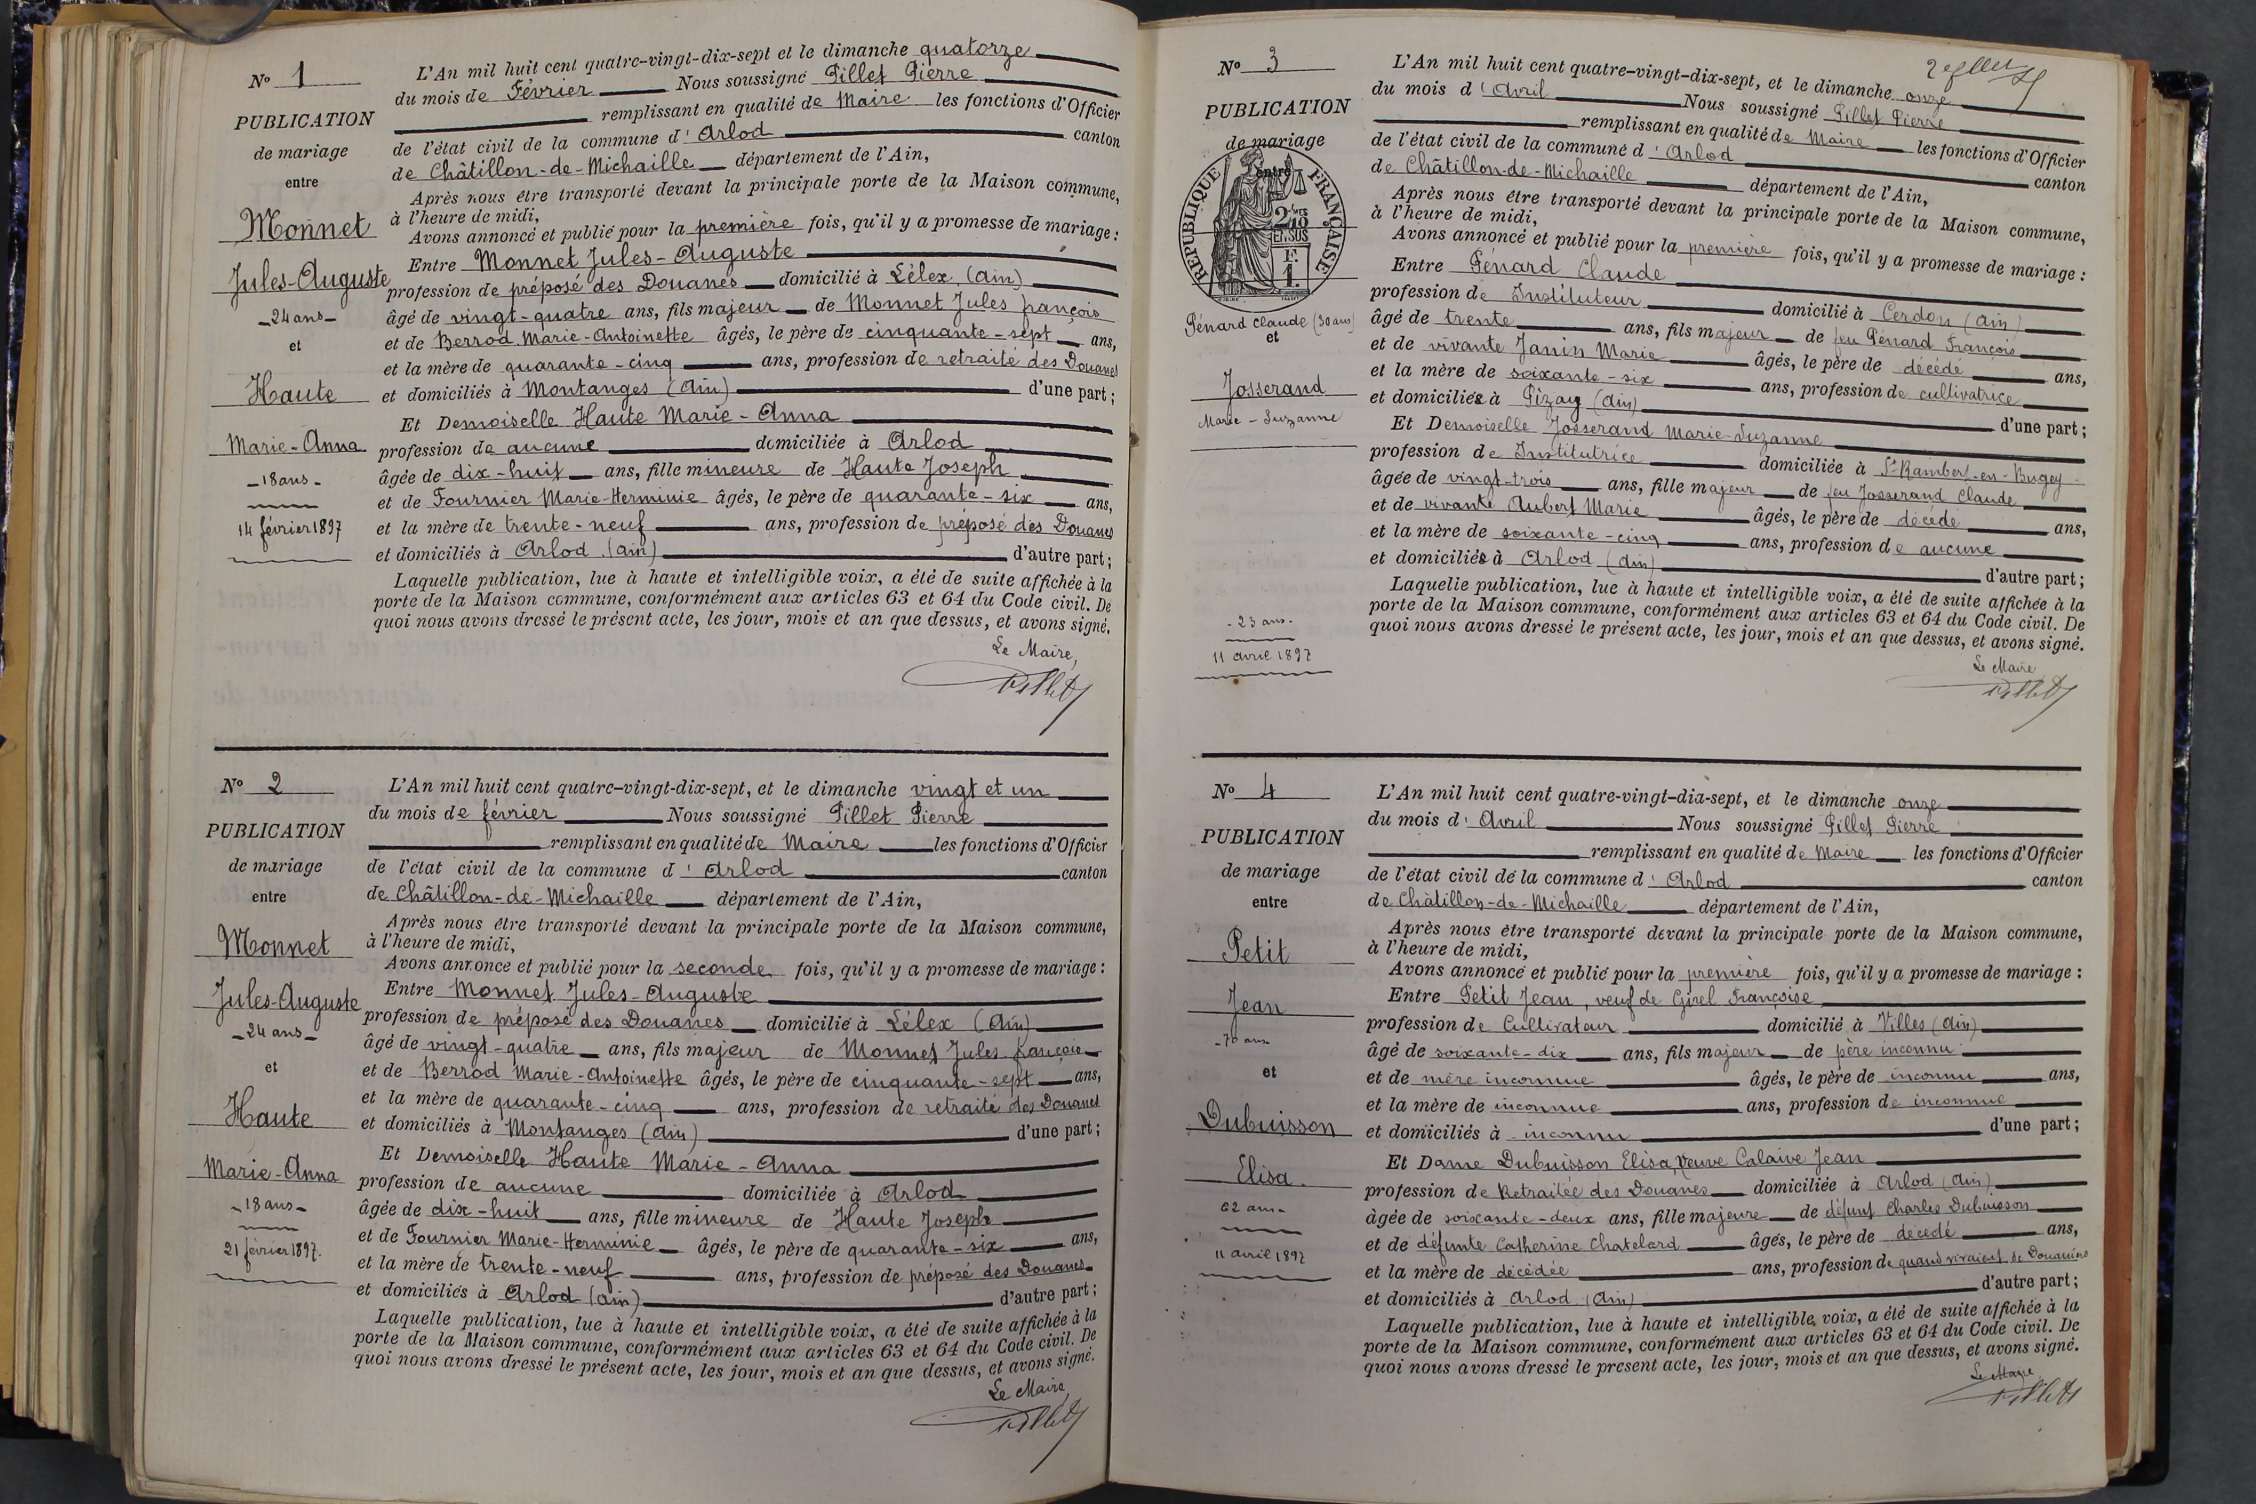 N° 1
PUBLICATION
de mariage
entre
Monnet
Jules-Auguste
24 ans
et
Haute
Marie-Anna
18 ans
14 février 1897
L'An mil huit cent quatre-vingt-dix-sept et le dimanche quatorze
du mois de Février Nous soussigné Pillet Pierre
remplissant en qualité de Maire les fonctions d'Officier
de l'état civil de la commune d'Arlod canton
de Châtillon-de-Michaille département de l'Ain,
Après nous être transporté devant la principale porte de la Maison commune,
à l'heure de midi,
Avons annoncé et publié pour la première fois, qu'il y a promesse de mariage :
Entre Monnet Jules-Auguste
profession de préposé des Douanes domicilié à Lélex (Ain)
âgé de vingt-quatre ans, fils majeur de Monnet Jules françois
et de Berrod Marie-Antoinette âgés, le père de cinquante-sept ans,
et la mère de quarante-cinq ans, profession de retraité des Douanes
et domiciliés à Montanges (Ain) d'une part ;
Et Demoiselle Haute Marie-Anna
profession de aucune domiciliée à Arlod
âgée de dix-huit ans, fille mineure de Haute Joseph
et de Fournier Marie-Herminie âgés, le père de quarante-six ans,
et la mère de trente-neuf ans, profession de préposé des Douanes
et domiciliés à Arlod (Ain) d'autre part ;
Laquelle publication, lue à haute et intelligible voix, a été de suite affichée à la
porte de la Maison commune, conformément aux articles 63 et 64 du Code civil. De
quoi nous avons dressé le présent acte, les jour, mois et an que dessus, et avons signé.
Le Maire,
Pillet
N° 2
PUBLICATION
de mariage
entre
Monnet
Jules-Auguste
24 ans
et
Haute
Marie-Anna
18 ans
21 février 1897.
L'An mil huit cent quatre-vingt-dix-sept, et le dimanche vingt et un
du mois de février Nous soussigné Pillet Pierre
remplissant en qualité de Maire les fonctions d'Officier
de l'état civil de la commune d'Arlod canton
de Châtillon-de-Michaille département de l'Ain,
Après nous être transporté devant la principale porte de la Maison commune,
à l'heure de midi,
Avons annoncé et publié pour la seconde fois, qu'il y a promesse de mariage :
Entre Monnet Jules-Auguste
profession de préposé des Douanes domicilié à Lélex (Ain)
âgé de vingt-quatre ans, fils majeur de Monnet Jules françois
et de Berrod Marie-Antoinette âgés, le père de cinquante-sept ans,
et la mère de quarante-cinq ans, profession de retraité des Douanes
et domiciliés à Montanges (Ain) d'une part ;
Et Demoiselle Haute Marie-Anna
profession de aucune domiciliée à Arlod
âgée de dix-huit ans, fille mineure de Haute Joseph
et de Fournier Marie-Herminie âgés, le père de quarante-six ans,
et la mère de trente-neuf ans, profession de préposé des Douanes
et domiciliés à Arlod (Ain) d'autre part ;
Laquelle publication, lue à haute et intelligible voix, a été de suite affichée à la
porte de la Maison commune, conformément aux articles 63 et 64 du Code civil. De
quoi nous avons dressé le présent acte, les jour, mois et an que dessus, et avons signé.
Le Maire,
Pillet
N° 3
PUBLICATION
de mariage
entre
REPUBLIQUE FRANÇAISE
2/10
EN SUS
F.
1.
Pénard Claude (30 ans)
et
Josserand
Marie-Suzanne
23 ans
11 avril 1897
L'An mil huit cent quatre-vingt-dix-sept, et le dimanche onze
du mois d'Avril Nous soussigné Pillet Pierre
remplissant en qualité de Maire les fonctions d'Officier
de l'état civil de la commune d'Arlod canton
de Châtillon-de-Michaille département de l'Ain,
Après nous être transporté devant la principale porte de la Maison commune,
à l'heure de midi,
Avons annoncé et publié pour la première fois, qu'il y a promesse de mariage :
Entre Pénard Claude
profession de Instituteur domicilié à Cerdon (Ain)
âgé de trente ans, fils majeur de feu Pénard François
et de vivante Janin Marie âgés, le père de décédé ans,
et la mère de soixante-six ans, profession de cultivatrice
et domiciliés à Pizay (Ain) d'une part ;
Et Demoiselle Josserand Marie-Suzanne
profession de Institutrice domiciliée à St Rambert-en-Bugey
âgée de vingt-trois ans, fille majeur de feu Josserand Claude
et de vivante Aubert Marie âgés, le père de décédé ans,
et la mère de soixante-cinq ans, profession de aucune
et domiciliés à Arlod (Ain) d'autre part ;
Laquelle publication, lue à haute et intelligible voix, a été de suite affichée à la
porte de la Maison commune, conformément aux articles 63 et 64 du Code civil. De
quoi nous avons dressé le présent acte, les jour, mois et an que dessus, et avons signé.
Le Maire
Pillet
N° 4
PUBLICATION
de mariage
entre
Petit
Jean
70 ans
et
Dubuisson
Elisa
62 ans
11 avril 1897
L'An mil huit cent quatre-vingt-dix-sept, et le dimanche onze
du mois d'Avril Nous soussigné Pillet Pierre
remplissant en qualité de Maire les fonctions d'Officier
de l'état civil de la commune d'Arlod canton
de Châtillon-de-Michaille département de l'Ain,
Après nous être transporté devant la principale porte de la Maison commune,
à l'heure de midi,
Avons annoncé et publié pour la première fois, qu'il y a promesse de mariage :
Entre Petit Jean, veuf de Girel Françoise
profession de Cultivateur domicilié à Villes (Ain)
âgé de soixante-dix ans, fils majeur de père inconnu
et de mère inconnue âgés, le père de inconnu ans,
et la mère de inconnue ans, profession de inconnue
et domiciliés à inconnu d'une part ;
Et Dame Dubuisson Elisa, Veuve Calaive Jean
profession de Retraitée des Douanes domiciliée à Arlod (Ain)
âgée de soixante-deux ans, fille majeure de défunt Charles Dubuisson
et de défunte Catherine Chatelard âgés, le père de décédé ans,
et la mère de décédée ans, profession de quand vivaient de Douanier
et domiciliés à Arlod (Ain) d'autre part ;
Laquelle publication, lue à haute et intelligible voix, a été de suite affichée à la
porte de la Maison commune, conformément aux articles 63 et 64 du Code civil. De
quoi nous avons dressé le présent acte, les jour, mois et an que dessus, et avons signé.
Le Maire
Pillet